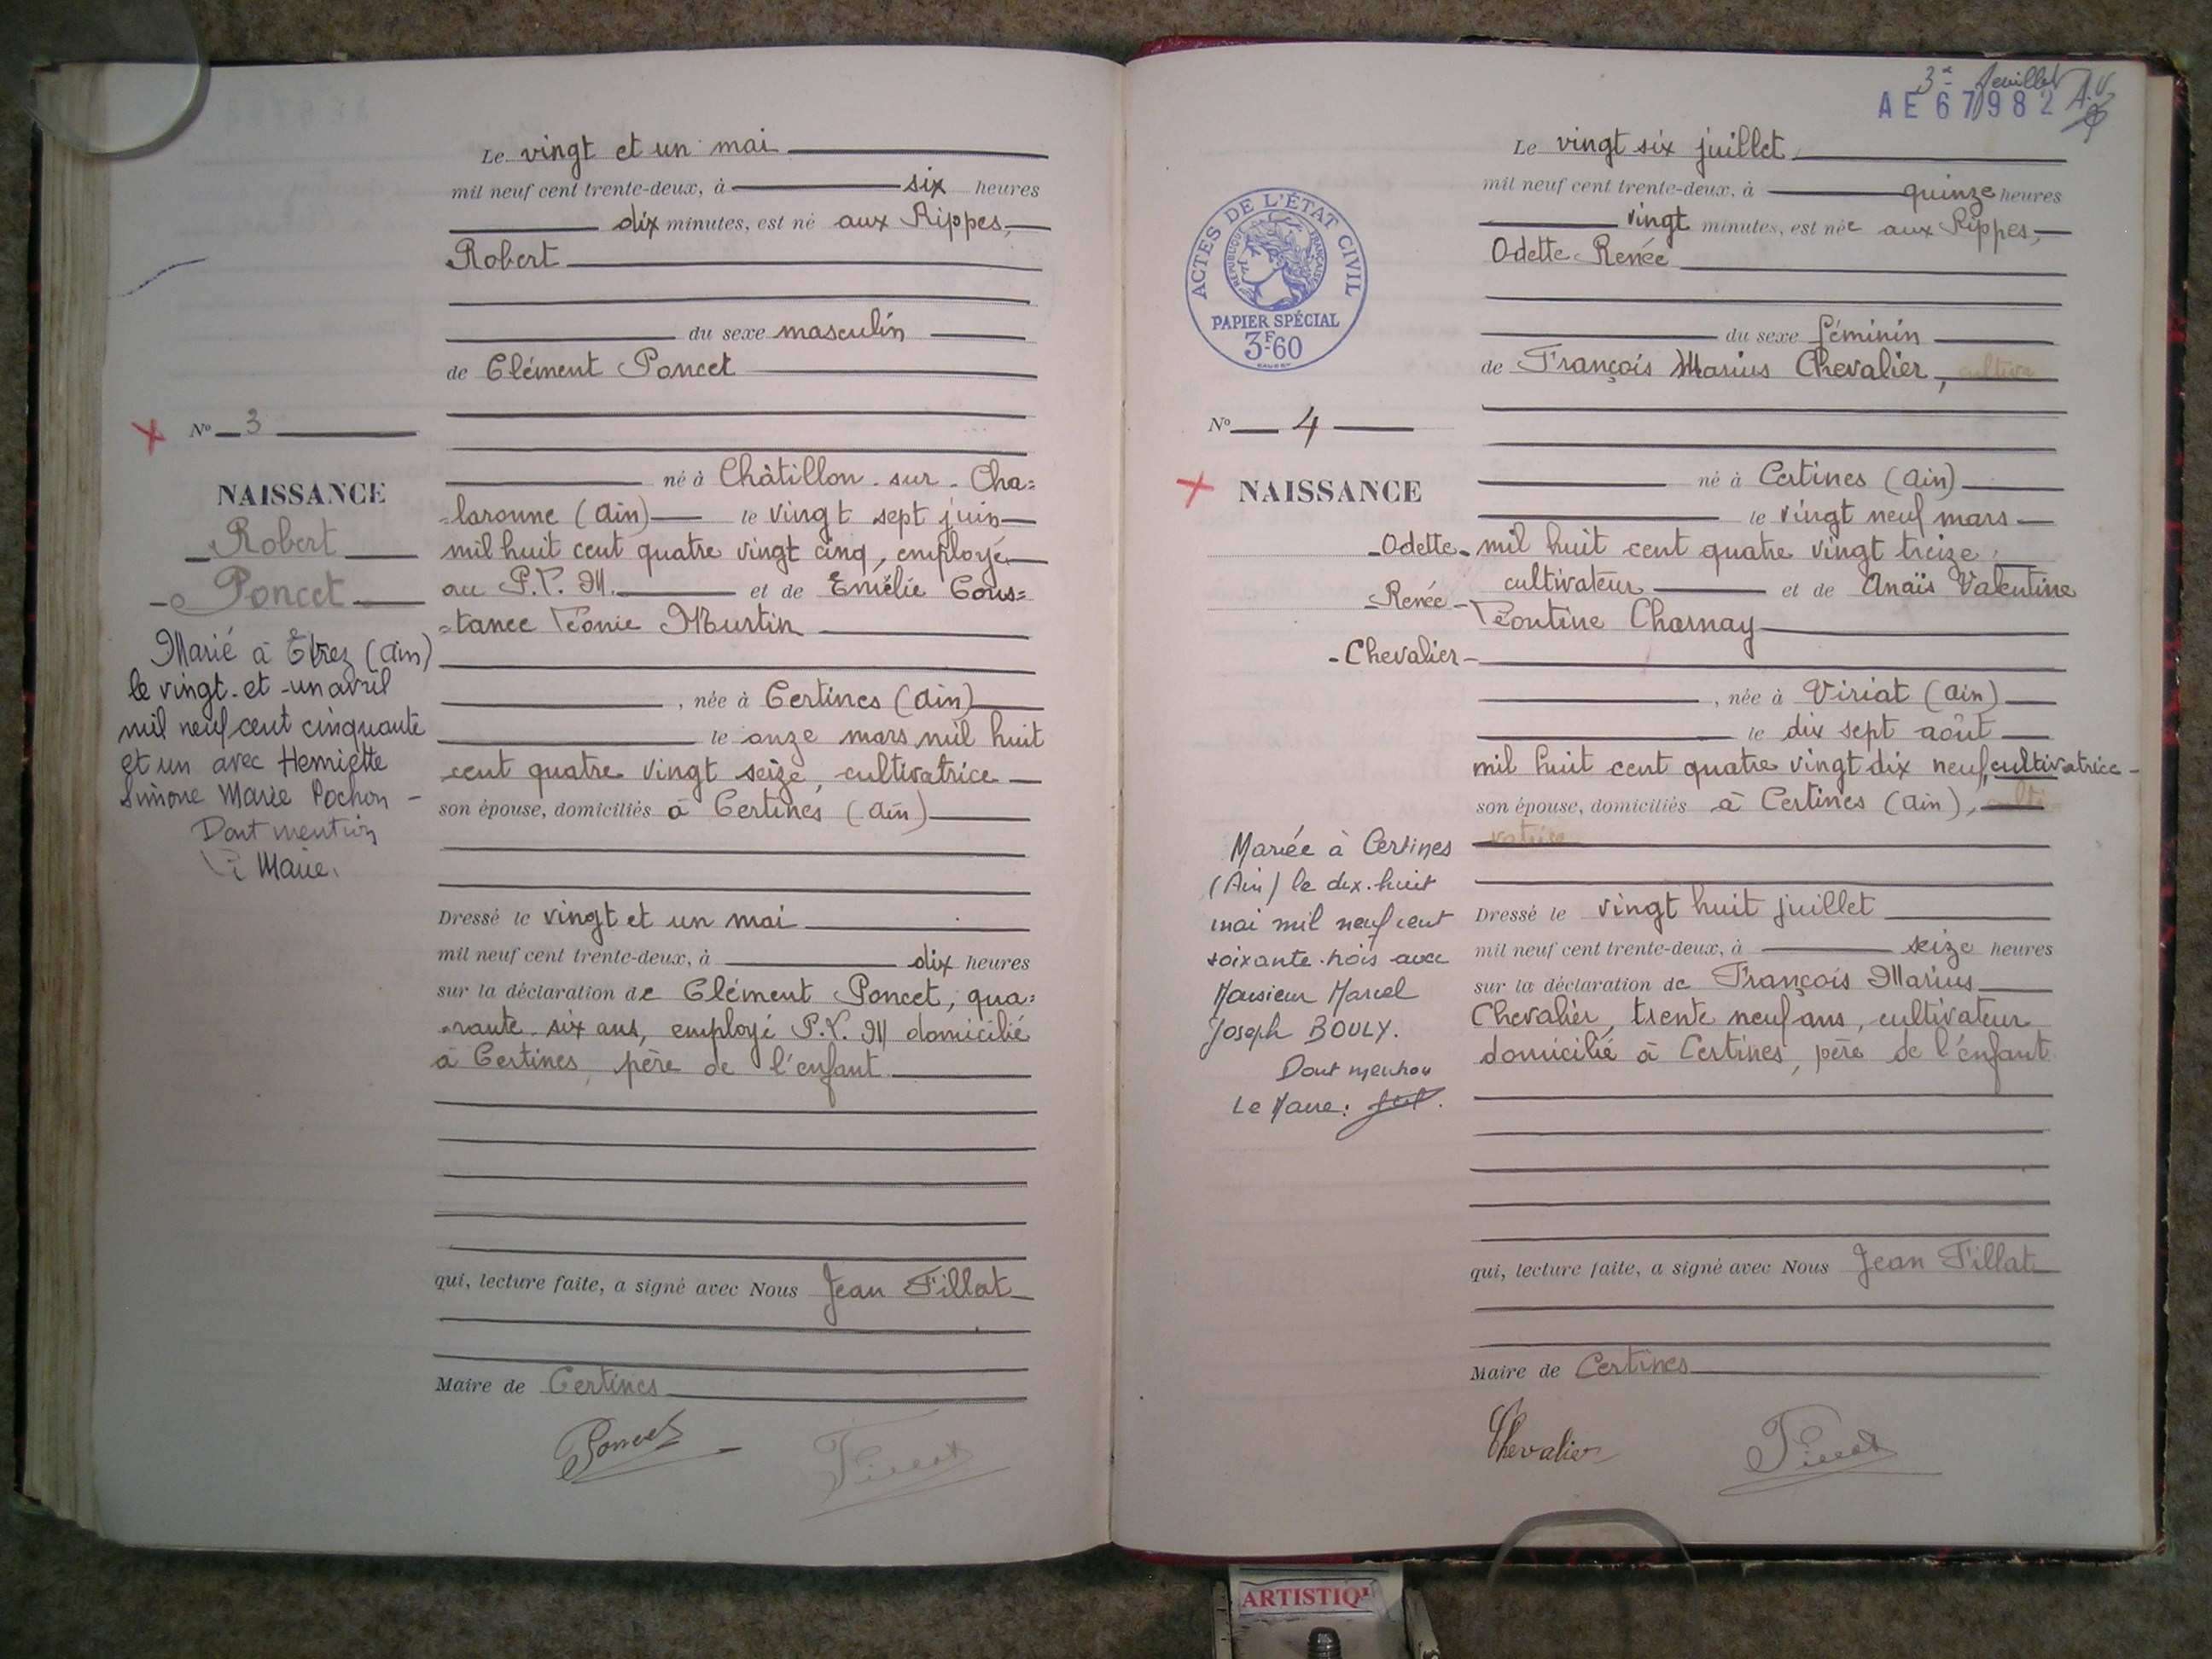 Le vingt et un mai
mil neuf cent trente-deux, à six heures
dix minutes, est né aux Rippes,
Robert
du sexe masculin
de Clément Poncet
N° 3
né à Châtillon-sur-Cha=
NAISSANCE
=laronne (Ain) le vingt sept juin
Robert
mil huit cent quatre vingt cinq, employé
Poncet
au P.L.M. et de Emélie Cons=
=tance Léonie Murtin
Marié à Etrez (Ain)
le vingt-et-un avril
mil neuf cent cinquante
et un avec Henriette
Simone Marie Pochon
Dont mention
Maire.
, née à Certines (Ain)
le onze mars mil huit
cent quatre vingt seize, cultivatrice
son épouse, domiciliés à Certines (Ain)
Dressé le vingt et un mai
mil neuf cent trente-deux, à dix heures
sur la déclaration de Clément Poncet, qua=
=rante-six ans, employé P.L.M domicilié
à Certines, père de l'enfant
qui, lecture faite, a signé avec Nous Jean Tillat
Maire de Certines
Poncet
3e feuillet
AE 67982
A.V.
Le vingt six juillet
mil neuf cent trente-deux, à quinze heures
vingt minutes, est née aux Rippes,
Odette Renée
ACTES DE L'ÉTAT CIVIL
RÉPUBLIQUE FRANÇAISE
PAPIER SPÉCIAL
3F60
du sexe féminin
de François Marius Chevalier, cultiva
N° 4
né à Certines (Ain)
NAISSANCE
le vingt neuf mars
Odette
mil huit cent quatre vingt treize,
Renée
cultivateur et de Anaïs Valentine
Léontine Charnay
Chevalier
, née à Viriat (Ain)
le dix sept août
mil huit cent quatre vingt dix neuf, cultivatrice
son épouse, domiciliés à Certines (Ain), culti
vatrice
Mariée à Certines
(Ain) le dix-huit
mai mil neuf cent
soixante-trois avec
Monsieur Marcel
Joseph BOULY.
Dont mention
Le Maire:
Dressé le vingt huit juillet
mil neuf cent trente-deux, à seize heures
sur la déclaration de François Marius
Chevalier, trente neuf ans, cultivateur
domicilié à Certines, père de l'enfant
qui, lecture faite, a signé avec Nous Jean Tillat
Maire de Certines
Chevalier
ARTISTIQ